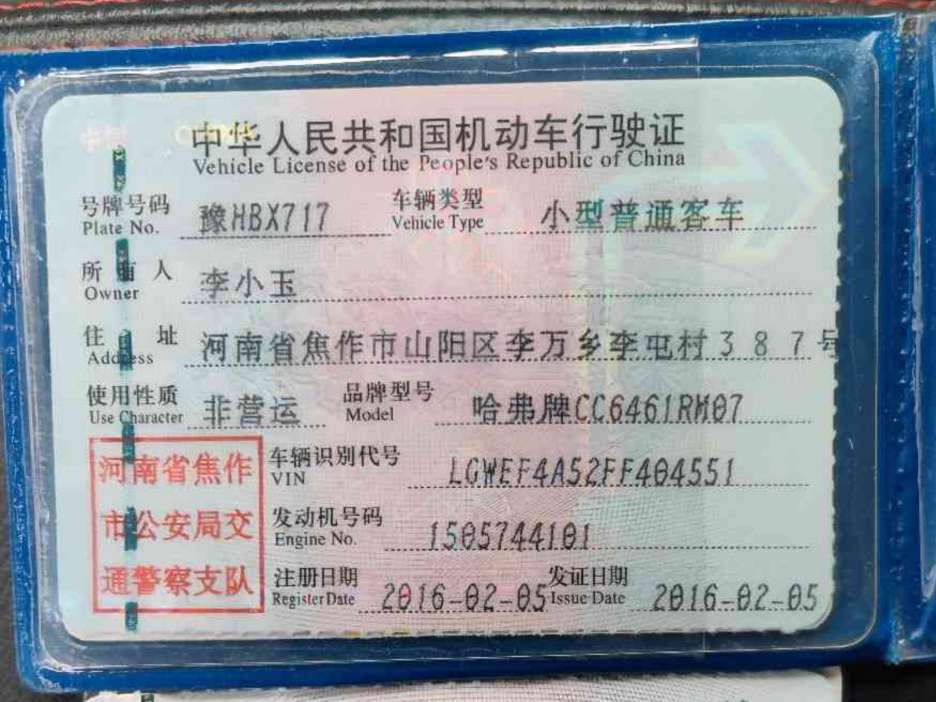 中华人民共和国机动车行驶证
Vehicle License of the People's Republic of China
号牌号码 豫HBX717 车辆类型 小型普通客车
Plate No. Vehicle Type
所有人 李小玉
Owner
住址 河南省焦作市山阳区李万乡李屯村387号
Address
使用性质 非营运 品牌型号 哈弗牌CC6461RM07
Use Character Model
河南省焦作
市公安局交
通警察支队
车辆识别代号 LGWEF4A52FF404551
VIN
发动机号码 1505744101
Engine No.
注册日期 2016-02-05 发证日期 2016-02-05
Register Date Issue Date